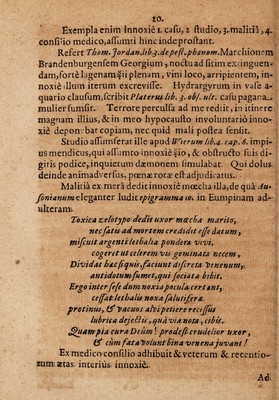 20.
Exempla enim Innoxiè 1. casu, 2 studio, 3. malitiâ, 4.
consilio medico, assumti hinc inde prostant.
Refert Thom. Jordan. lib. 3. de pest. phænom. Marchionem
Brandenburgensem Georgium, noctu ad sitim extinguen-
dam, fortè lagenam ☿ii plenam, vini loco, arripientem, in-
noxiè illum iterum excrevisse. Hydrargyrum in vase a-
quario clausum, scribit Platerus lib. 3. obs. ult. casu pagana
mulier sumsit. Terrore perculsa ad me redit, in itinere
magnam illius, & in meo hypocausto involuntariò inno-
xiè deponebat copiam, nec quid mali postea sensit.
Studio assumserat ille apud Wierum lib. 4. cap. 6. impi-
us mendicus, qui assumto innoxiè ☿io, & obstructo suis di-
gitis podice, inquietum dæmonem simulabat. Qui dolus
deinde animadversus, pœna rotæ est adjudicatus.
Malitiâ ex merâ dedit innoxiè mœcha illa, de quâ Au-
sonianum eleganter ludit epigramma 10. in Eumpinam ad-
ulteram.
Toxica zelotypo dedit uxor mœcha marito,
nec satis ad mortem credidit esse datum,
miscuit argenti lethalia pondera vivi,
cogeret ut celerem vis geminata necem,
Dividat hæc si quis, faciunt discreta venenum,
antidotum sumet, qui sociata bibit.
Ergo inter sese dum noxia pocula certant,
cessat lethalis noxa salutiferæ
protinus, & vacuos alvi petiere recessus
lubrica dejectis, quà via nota, cibis.
Quam pia cura Deûm! prodest crudelior uxor,
& cùm fata volunt bina venena juvant!
Ex medico consilio adhibuit & veterum & recentio-
rum ætas interiùs innoxiè.
Ad